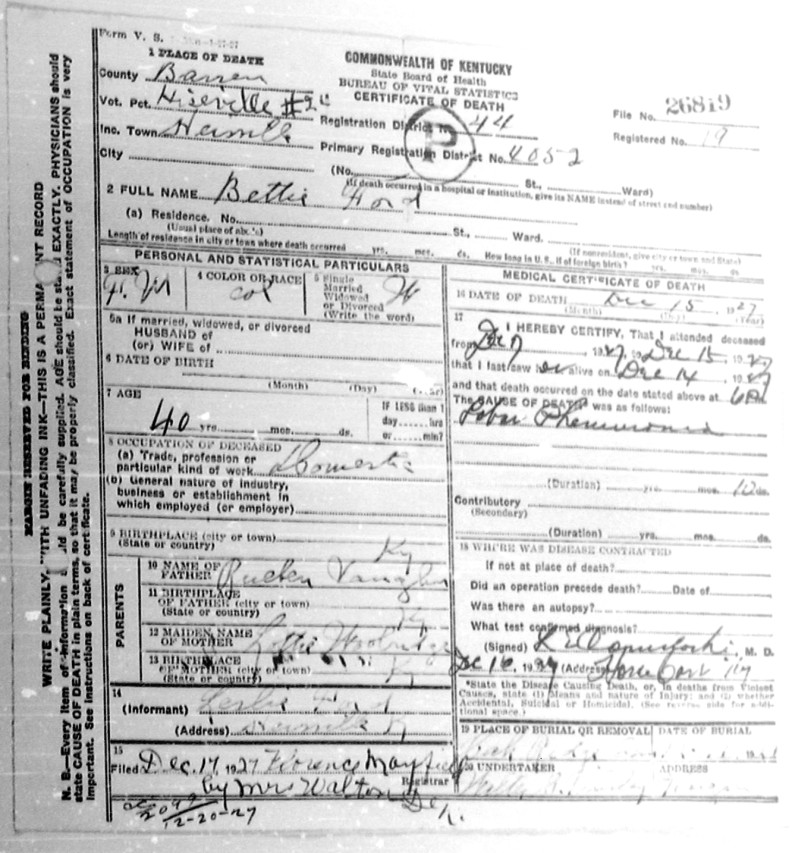 Form V. S.
1 PLACE OF DEATH
County Barren
Vot. Pct. Hiseville #2
Inc. Town
City
COMMONWEALTH OF KENTUCKY
State Board of Health
BUREAU OF VITAL STATISTICS
CERTIFICATE OF DEATH
Registration District No. 44
Primary Registration District No. 4052
P
File No. 26819
Registered No. 19
(No. St., Ward)
(If death occurred in a hospital or institution, give its NAME instead of street and number)
2 FULL NAME Bettie Ford
(a) Residence. No. St., Ward.
(Usual place of abode) (If nonresident, give city or town and State)
Length of residence in city or town where death occurred yrs. mos. ds. How long in U. S., if of foreign birth? yrs. mos. ds.
PERSONAL AND STATISTICAL PARTICULARS
3 SEX
4 COLOR OR RACE
Col
5 Single
Married
Widowed
or Divorced
(Write the word)
5a If married, widowed, or divorced
HUSBAND of
(or) WIFE of
6 DATE OF BIRTH
(Month) (Day)
7 AGE
40 yrs. mos. ds.
IF LESS than 1
day hrs
or min?
8 OCCUPATION OF DECEASED
(a) Trade, profession or
particular kind of work Domestic
(b) General nature of industry,
business or establishment in
which employed (or employer)
9 BIRTHPLACE (city or town)
(State or country) Ky
PARENTS
10 NAME OF
FATHER Rueben Vaughn
11 BIRTHPLACE
OF FATHER (city or town)
(State or country) Ky
12 MAIDEN NAME
OF MOTHER Lottie
13 BIRTHPLACE
OF MOTHER (city or town)
(State or country) Ky
14
(Informant) Leslie Ford
(Address)
15
Filed Dec. 17, 1927 Florence Mayfield
Registrar
by Mrs Walton
12-20-27
MEDICAL CERTIFICATE OF DEATH
16 DATE OF DEATH Dec 15, 1927
(Month) (Day) (Year)
17
I HEREBY CERTIFY, That I attended deceased
from Dec 7 1927, to Dec 15, 1927
that I last saw her alive on Dec 14, 1927
and that death occurred on the date stated above at 6
The CAUSE OF DEATH was as follows:
Lobar Pneumonia
(Duration) yrs. mos. 10 ds.
Contributory
(Secondary)
(Duration) yrs. mos. ds.
18 WHERE WAS DISEASE CONTRACTED
If not at place of death?
Did an operation precede death? Date of
Was there an autopsy?
What test confirmed diagnosis?
(Signed) M. D.
Dec 16, 1927 (Address) Horse Cave Ky
*State the Disease Causing Death, or, in deaths from Violent
Causes, state (1) Means and nature of Injury; and (2) whether
Accidental, Suicidal or Homicidal. (See reverse side for addi-
tional space.)
19 PLACE OF BURIAL OR REMOVAL DATE OF BURIAL
20 UNDERTAKER ADDRESS
MARGIN RESERVED FOR BINDING
WRITE PLAINLY, WITH UNFADING INK—THIS IS A PERMANENT RECORD
N. B.—Every item of information should be carefully supplied. AGE should be stated EXACTLY. PHYSICIANS should
state CAUSE OF DEATH in plain terms, so that it may be properly classified. Exact statement of OCCUPATION is very
important. See instructions on back of certificate.